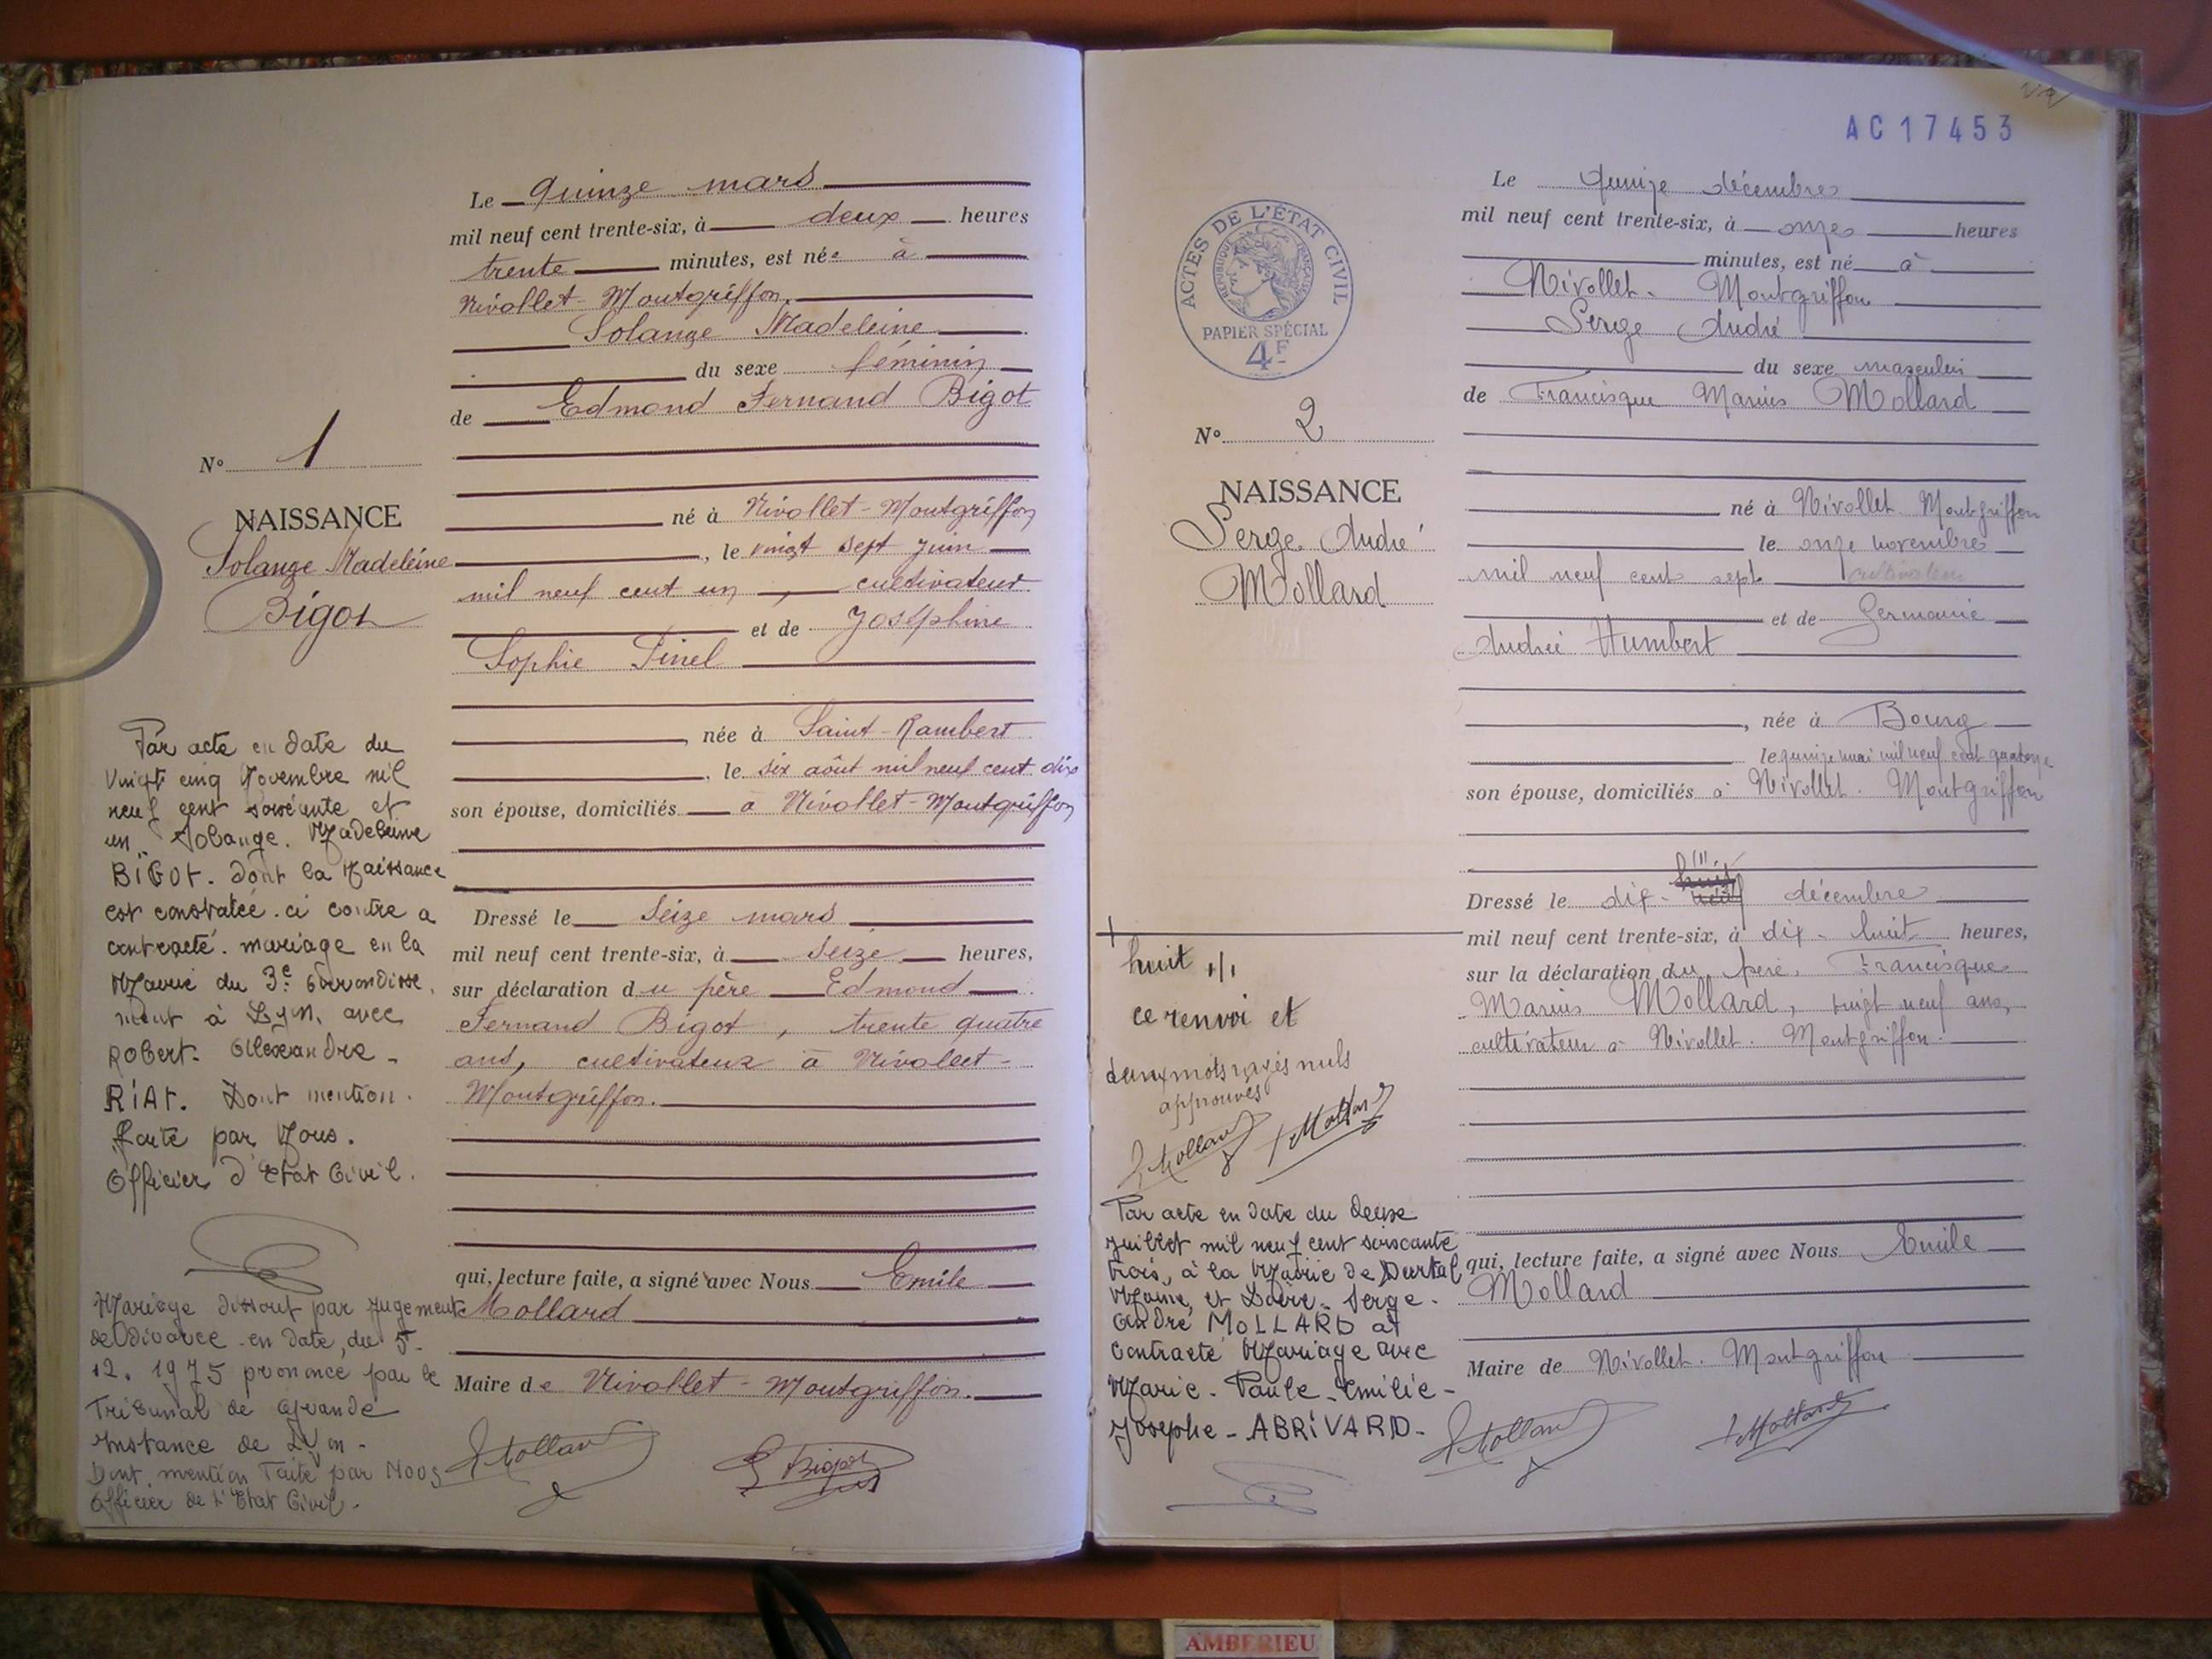 Le quinze mars
mil neuf cent trente-six, à deux heures
trente minutes, est née à
Nivollet-Montgriffon,
Solange Madeleine
du sexe féminin
de Edmond Fernand Bigot
N° 1
NAISSANCE
Solange Madeleine
Bigot
né à Nivollet-Montgriffon
, le vingt sept juin
mil neuf cent un, cultivateur
et de Joséphine
Sophie Pinel
, née à Saint-Rambert
, le six août mil neuf cent dix
son épouse, domiciliés à Nivollet-Montgriffon
Dressé le Seize mars
mil neuf cent trente-six, à seize heures,
sur déclaration du père Edmond
Fernand Bigot, trente quatre
ans, cultivateur à Nivollet-
Montgriffon.
qui, lecture faite, a signé avec Nous Emile
Mollard
Maire de Nivollet-Montgriffon.
Mollard
E Bigot
Par acte en date du
Vingt cinq Novembre mil
neuf cent soixante et
un. Solange. Madeleine
BIGOT. dont la Naissance
est constatée. ci contre a
contracté. mariage en la
Mairie du 3e arrondisse.
ment à Lyon, avec
Robert. Alexandre -
RIAT. Dont mention.
faite par Nous.
Officier d'Etat Civil.
Mariage dissout par jugement
de divorce en date, du 5.
12. 1975 prononcé par le
Tribunal de Grande
Instance de Lyon -
Dont. mention faite par Nous
Officier de l'Etat Civil.
AC17453
ACTES DE L'ÉTAT CIVIL
RÉPUBLIQUE FRANÇAISE
PAPIER SPÉCIAL
4F
Le quinze décembre
mil neuf cent trente-six, à onze heures
minutes, est né à
Nivollet-Montgriffon
Serge André
du sexe masculin
de Francisque Marius Mollard
N° 2
NAISSANCE
Serge André
Mollard
né à Nivollet Montgriffon
le onze novembre
mil neuf cent sept cultivateur
et de Germaine
Andrée Humbert
, née à Bourg
le quinze mai mil neuf cent quatorze
son épouse, domiciliés à Nivollet. Montgriffon
huit
Dressé le dix-neuf décembre
mil neuf cent trente-six, à dix-huit heures,
sur la déclaration du père, Francisque
Marius Mollard, vingt neuf ans,
cultivateur à Nivollet. Montgriffon.
qui, lecture faite, a signé avec Nous Emile
Mollard
Maire de Nivollet. Montgriffon
Mollard
Mollard
huit
ce renvoi et
deux mots rayés nuls
approuvés
Mollard
Mollard
Par acte en date du deux
juillet mil neuf cent soixante
trois, à la Mairie de Durtal
Maine, et Loire. Serge.
André MOLLARD at
contracté Mariage avec
Marie - Paule - Emilie -
Josephe - ABRIVARD -
AMBERIEU